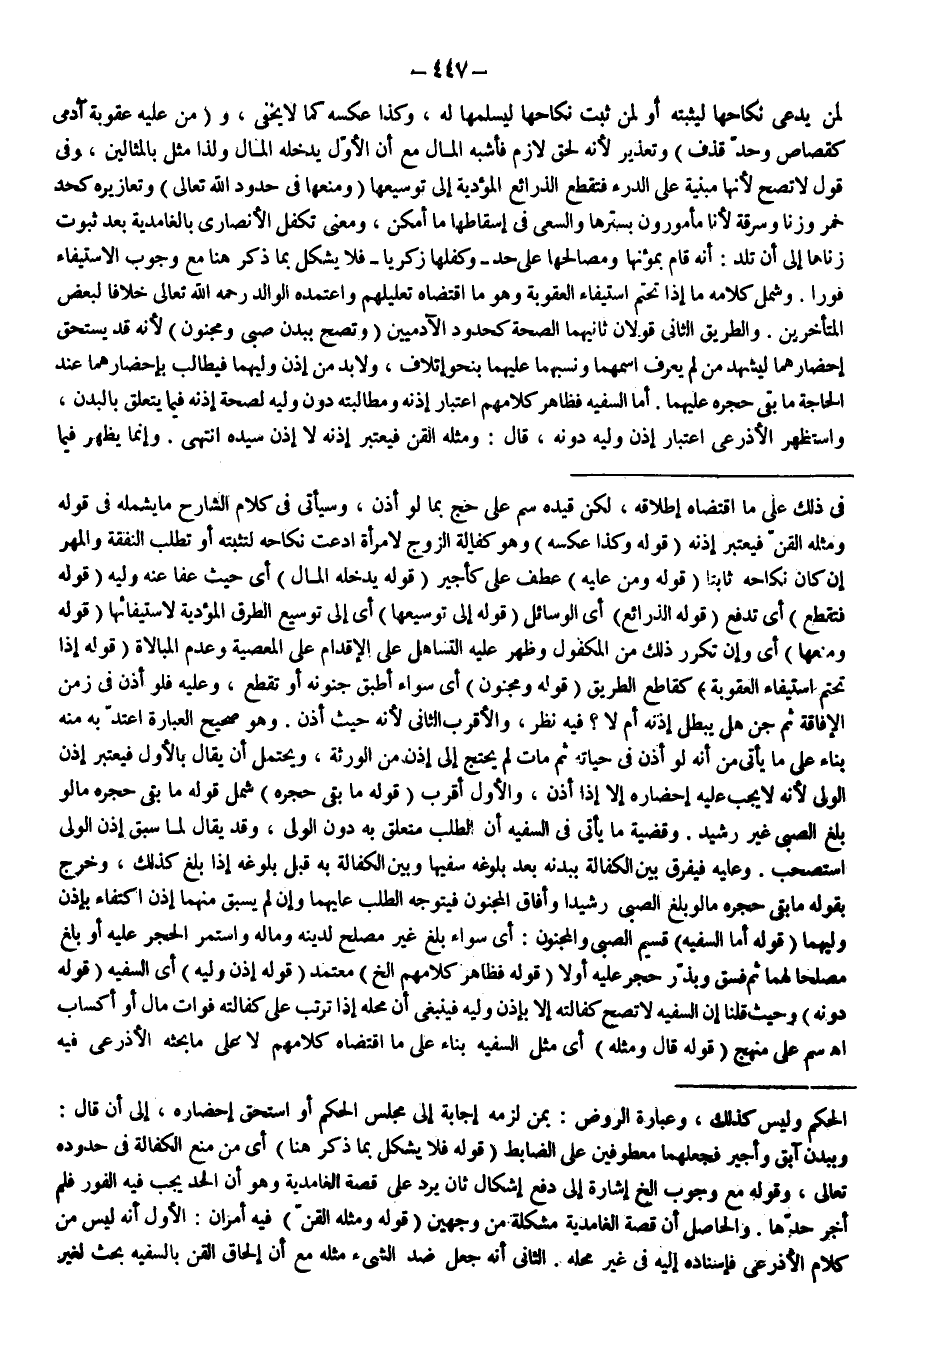 – ٤٤٧ –
لمن يدعى نكاحها ليثبته أو لمن ثبت نكاحها ليسلمها له ، وكذا عكسه كما لايخفى ، و ( من عليه عقوبة آدمى
كقصاص وحدّ قذف ) وتعذير لأنه لحق لازم فأشبه المال مع أن الأوّل يدخله المال ولذا مثل بالمثالين ، وفى
قول لاتصح لأنها مبنية على الدرء فتقطع الذرائع المؤدية إلى توسيعها ( ومنعها فى حدود الله تعالى ) وتعازيره كحد
خمر وزنا وسرقة لأنا مأمورون بسترها والسعى فى إسقاطها ما أمكن ، ومعنى تكفل الأنصارى بالغامدية بعد ثبوت
زناها إلى أن تلد : أنه قام بمؤنها ومصالحها على حد ـ وكفلها زكريا ـ فلا يشكل بما ذكر هنا مع وجوب الاستيفاء
فورا . وشمل كلامه ما إذا تحتم استيفاء العقوبة وهو ما اقتضاه تعليلهم واعتمده الوالد رحمه الله تعالى خلافا لبعض
المتأخرين . والطريق الثانى قولان ثانيهما الصحة كحدود الآدميين ( وتصح ببدن صبى ومجنون ) لأنه قد يستحق
إحضارهما ليشهد من لم يعرف اسمهما ونسبهما عليهما بنحو إتلاف ، ولابد من إذن وليهما فيطالب بإحضارهما عند
الحاجة ما بقى حجره عليهما . أما السفيه فظاهر كلامهم اعتبار إذنه ومطالبته دون وليه لصحة إذنه فيما يتعلق بالبدن ،
واستظهر الأذرعى اعتبار إذن وليه دونه ، قال : ومثله القن فيعتبر إذنه لا إذن سيده انتهى . وإنما يظهر فيما
فى ذلك على ما اقتضاه إطلاقه ، لكن قيده سم على حج بما لو أذن ، وسيأتى فى كلام الشارح مايشمله فى قوله
ومثله القنّ فيعتبر إذنه ( قوله وكذا عكسه ) وهو كفالة الزوج لامرأة ادعت نكاحه لتثبته أو تطلب النفقة والمهر
إن كان نكاحه ثابتا ( قوله ومن عليه ) عطف على كأجير ( قوله يدخله المال ) أى حيث عفا عنه وليه ( قوله
فتقطع ) أى تدفع ( قوله الذرائع ) أى الوسائل ( قوله إلى توسيعها ) أى إلى توسيع الطرق المؤدية لاستيفائها ( قوله
ومنعها ) أى وإن تكرر ذلك من المكفول وظهر عليه التساهل على الإقدام على المعصية وعدم المبالاة ( قوله إذا
تحتم استيفاء العقوبة ) كقاطع الطريق ( قوله ومجنون ) أى سواء أطبق جنونه أو تقطع ، وعليه فلو أذن فى زمن
الإفاقة ثم جن هل يبطل إذنه أم لا ؟ فيه نظر ، والأقرب الثانى لأنه حيث أذن . وهو صحيح العبارة اعتدّ به منه
بناء على ما يأتى من أنه لو أذن فى حياته ثم مات لم يحتج إلى إذن من الورثة ، ويحتمل أن يقال بالأول فيعتبر إذن
الولى لأنه لايجب عليه إحضاره إلا إذا أذن ، والأول أقرب ( قوله ما بقى حجره ) شمل قوله ما بقى حجره مالو
بلغ الصبى غير رشيد . وقضية ما يأتى فى السفيه أن الطلب متعلق به دون الولى ، وقد يقال لما سبق إذن الولى
استصحب . وعليه فيفرق بين الكفالة ببدنه بعد بلوغه سفيها وبين الكفالة به قبل بلوغه إذا بلغ كذلك ، وخرج
بقوله مابقى حجره مالو بلغ الصبى رشيدا وأفاق المجنون فيتوجه الطلب عليهما وإن لم يسبق منهما إذن اكتفاء بإذن
وليهما ( قوله أما السفيه) قسيم الصبى والمجنون : أى سواء بلغ غير مصلح لدينه وماله واستمر الحجر عليه أو بلغ
مصلحا لهما ثم فسق وبذّر حجر عليه أولا ( قوله فظاهر كلامهم الخ ) معتمد ( قوله إذن وليه ) أى السفيه ( قوله
دونه ) وحيث قلنا إن السفيه لاتصح كفالته إلا بإذن وليه فينبغى أن محله إذا ترتب على كفالته فوات مال أو أكساب
اهـ سم على منهج ( قوله قال ومثله ) أى مثل السفيه بناء على ما اقتضاه كلامهم لا على مابحثه الأذرعى فيه
الحكم وليس كذلك ، وعبارة الروض : بمن لزمه إجابة إلى مجلس الحكم أو استحق إحضاره ، إلى أن قال :
وببدن آبق وأجير فجعلهما معطوفين على الضابط ( قوله فلا يشكل بما ذكر هنا ) أى من منع الكفالة فى حدوده
تعالى ، وقوله مع وجوب الخ إشارة إلى دفع إشكال ثان يرد على قصة الغامدية وهو أن الحد يجب فيه الفور فلم
أخر حدّها . والحاصل أن قصة الغامدية مشكلة من وجهين ( قوله ومثله القنّ ) فيه أمران : الأول أنه ليس من
كلام الأذرعى فإسناده إليه فى غير محله . الثانى أنه جعل ضد الشىء مثله مع أن إلحاق القن بالسفيه بحث لغير